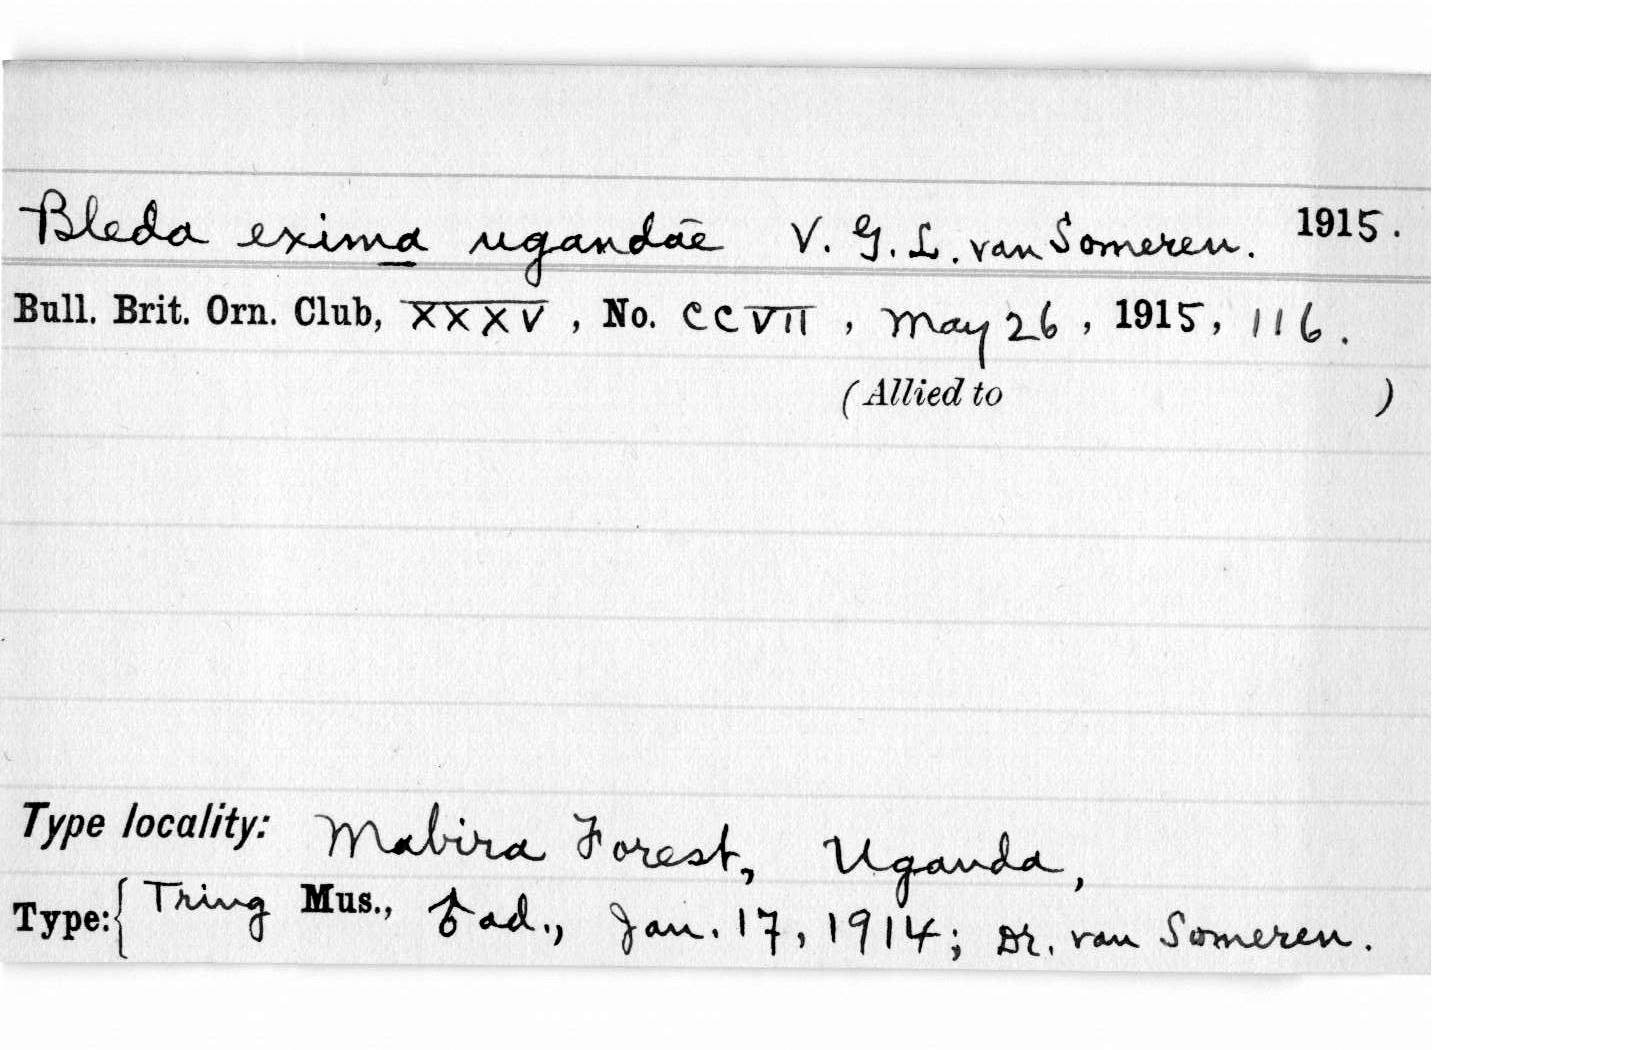 Bleda exima ugandae V. G. L. van Someren. 1915.
Bull. Brit. Orn. Club, XXXV, No. CCVII, May 26, 1915, 116.
(Allied to )
Type locality: Mabira Forest, Uganda,
Type: { Tring Mus., ♂ ad., Jan. 17, 1914; Dr. van Someren.